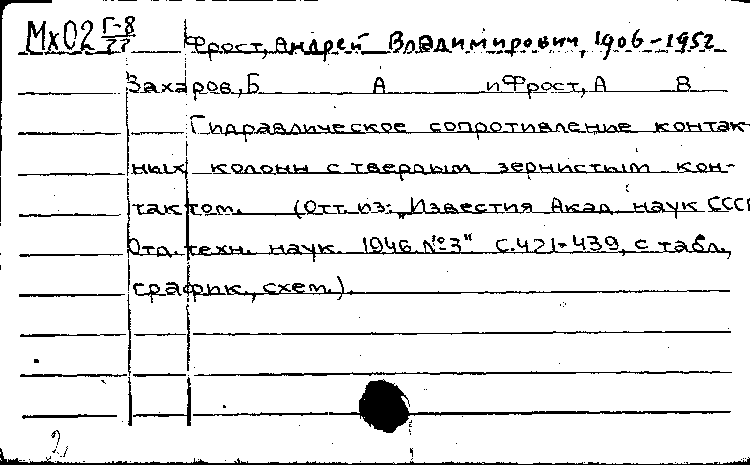 Мх02 Г-8/22 Фрост, Андрей Владимирович, 1906-1952
Захаров, Б А и Фрост, А В
Гидравлическое сопротивление контак-
ных колонн с твердым зернистым кон-
тактом. (Отт. из: „Известия Акад. наук СССР
Отд. техн. наук. 1946. №3" С.421-439, с табл.,
график., схем.).
2